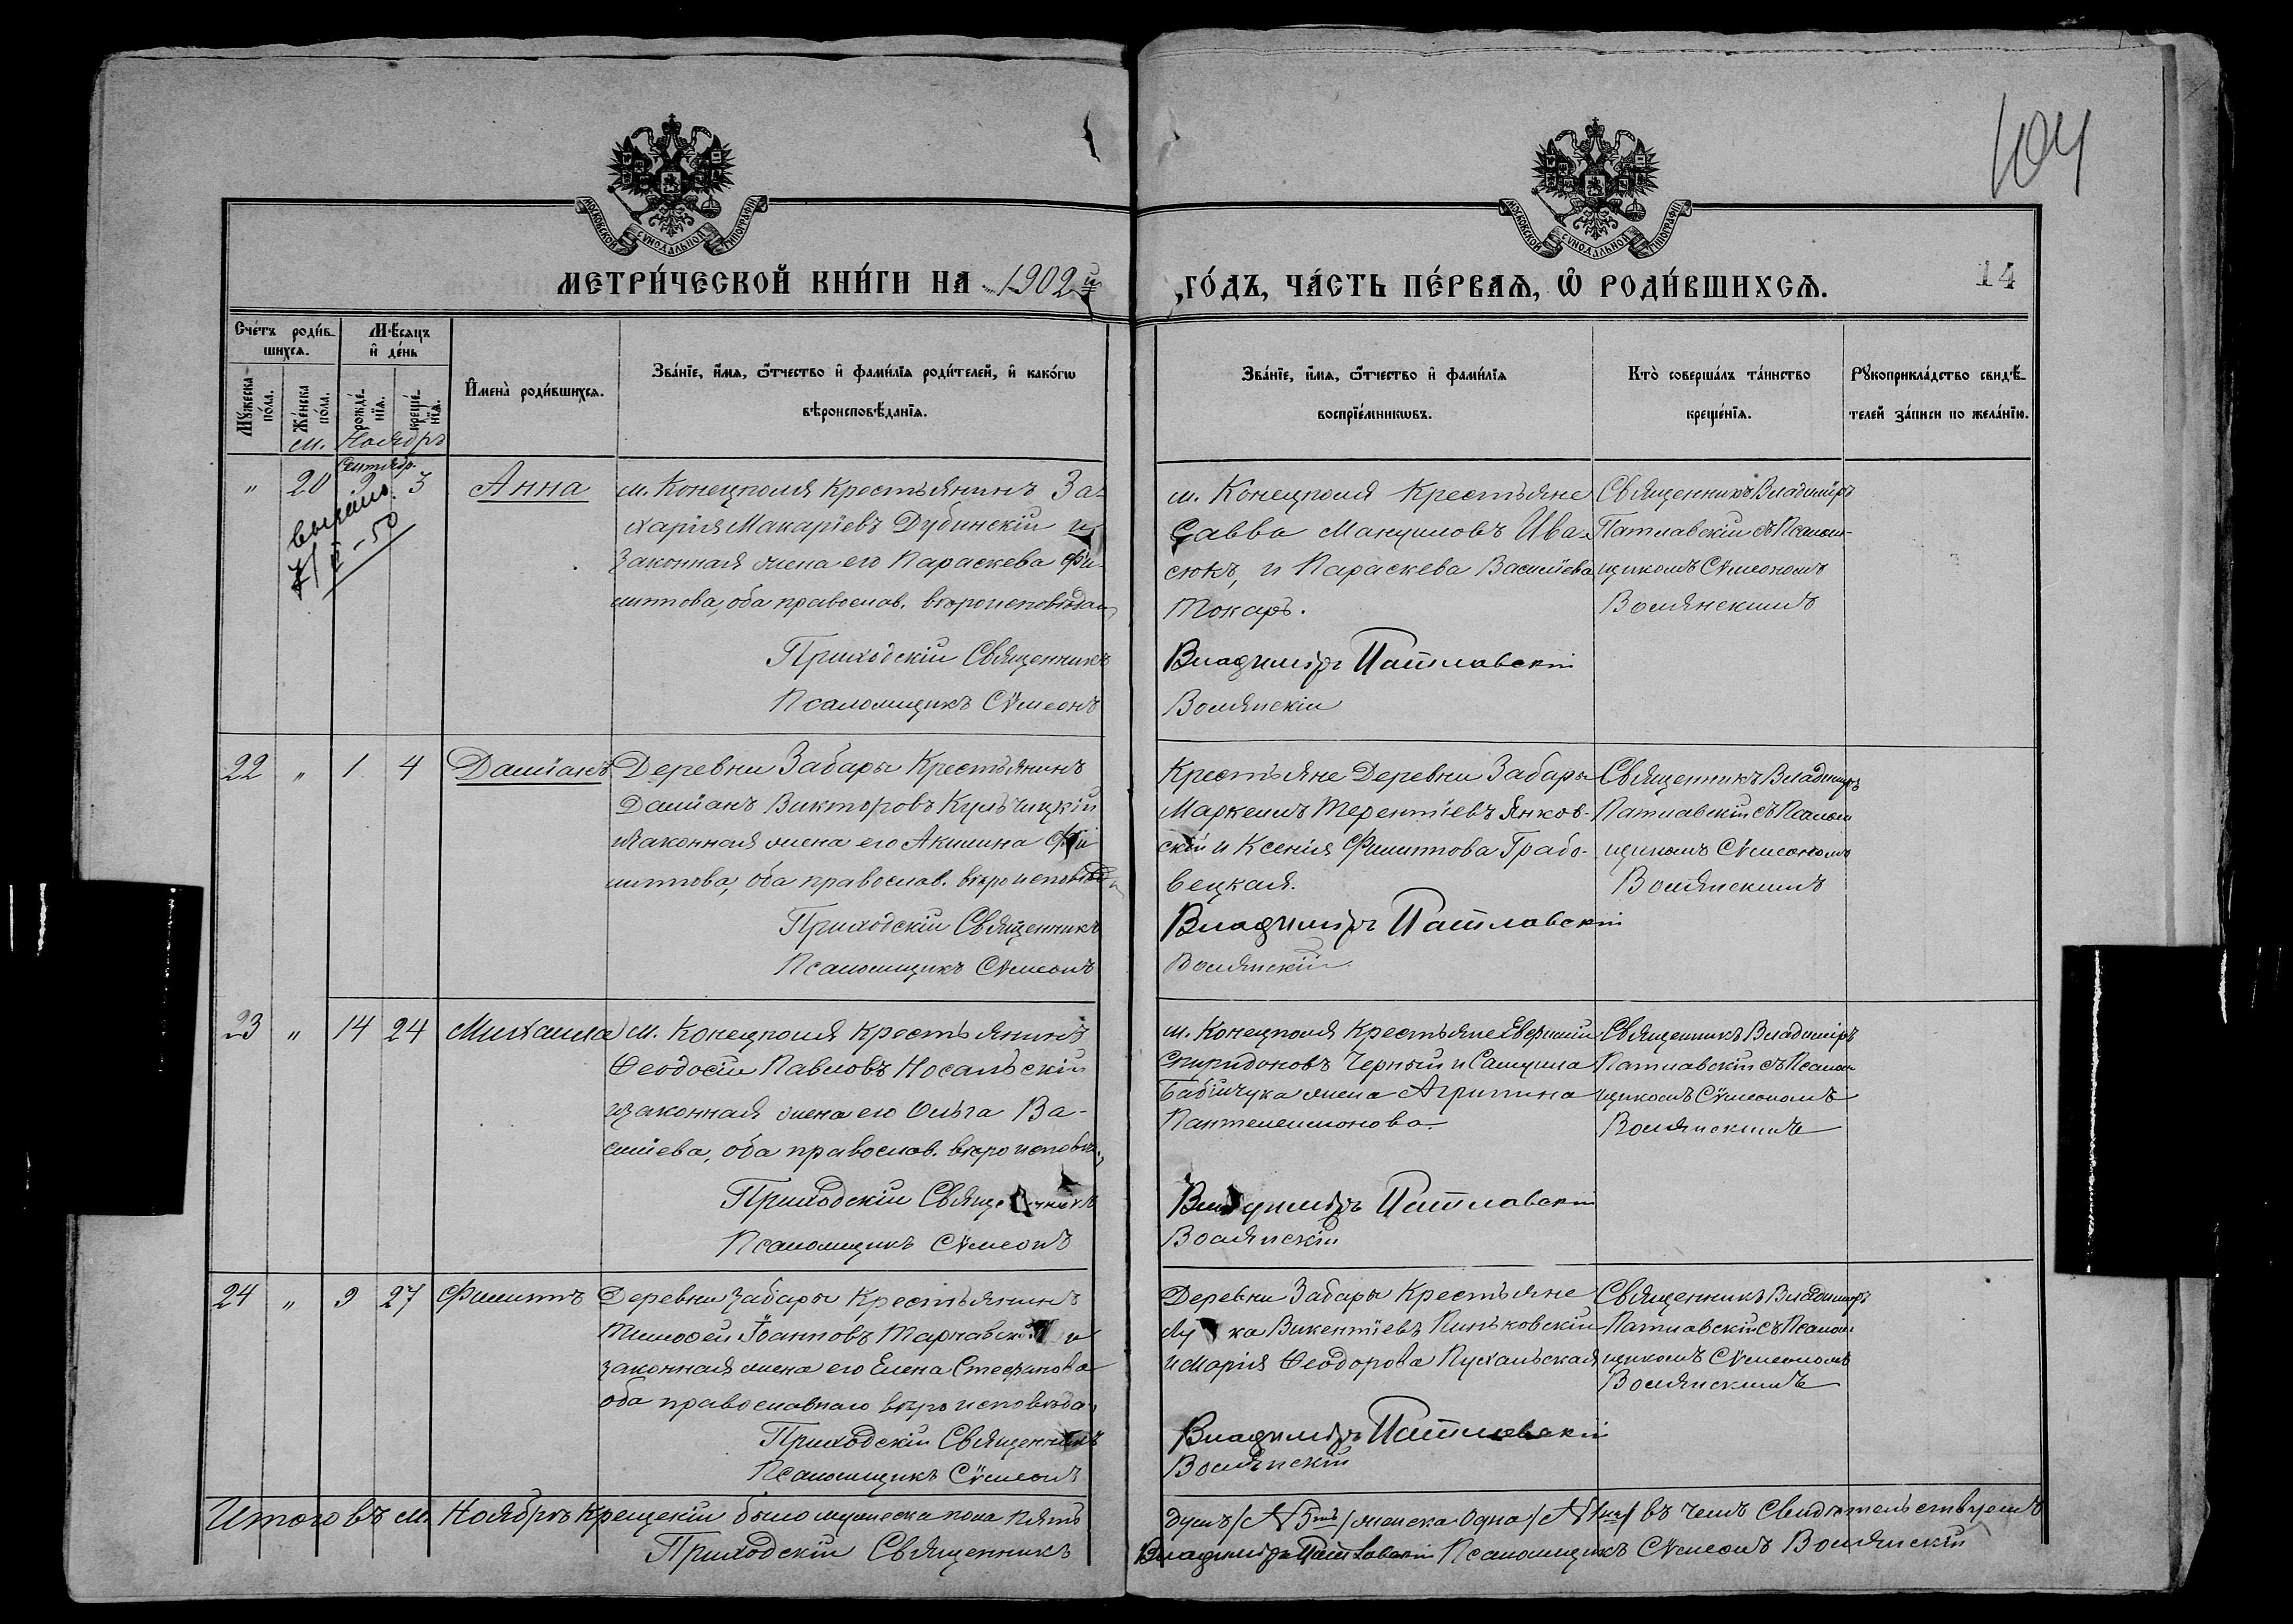 104
МОСКОВСКОЙ СѴНОДАЛЬНОЙ ТИПОГРАФІИ
МОСКОВСКОЙ СѴНОДАЛЬНОЙ ТИПОГРАФІИ
МЕТРИ́ЧЕСКОЙ КНИ́ГИ НА 1902й
ГО́ДЪ, ЧА́СТЬ ПЕ́РВАѦ, Ѡ РОДИ́ВШИХСѦ.
14
Сче́тъ роди́в-
шихсѧ.
Мѣ́сѧцъ
и де́нь
Мꙋ́жеска по́ла.
Же́нска по́ла.
рожде́нїѧ.
креще́нїѧ.
Имена̀ роди́вшихсѧ.
Зва́нїе, и́мѧ, ѻ́тчество и фами́лїѧ роди́телей, и како́гѡ
вѣроисповѣ́данїѧ.
Зва́нїе, и́мѧ, ѻ́тчество и фами́лїѧ
воспрїе́мникѡвъ.
Кто̀ соверша́лъ та́инство
креще́нїѧ.
Рꙋкоприкла́дство свидѣ́-
телей за́писи по жела́нїю.
м. Ноябрь
Сентябр.
" 20 3 Анна
м. Конецполя Крестьянинъ За-
харія Макаріевъ Дубинскій и
законная жена его Параскева Фи-
липпова, оба православ. вѣроисповѣдан
Приходскій Священникъ
Псаломщикъ Сѵмеонъ
м. Конецполя Крестьяне
Савва Мануиловъ Ива-
сюкъ, и Параскева Василіева
Токаръ.
Владиміръ Патлавскій
Волянскій
Священникъ Владиміръ
Патлавскій съ Псалом-
щикомъ Сѵмеономъ
Волянскимъ
22 " 1 4 Даміанъ
Деревни Забары Крестьянинъ
Даміанъ Викторовъ Кульчицкій
и законная жена его Акилина Фи
липпова, оба православ. вѣроисповѣд
Приходскій Священникъ
Псаломщикъ Сѵмеонъ
Крестьяне Деревни Забары
Маркеллъ Терентіевъ Янков-
скій и Ксенія Филиппова Грабо-
вецкая.
Владиміръ Патлавскій
Волянскій
Священникъ Владиміръ
Патлавскій съ Псалом
щикомъ Сѵмеономъ
Волянскимъ
23 " 14 24 Михаилъ
м. Конецполя Крестьянинъ
Ѳеодосій Павловъ Носальскій
и законная жена его Ольга Ва-
силіева, оба православ. вѣроисповѣ
Приходскій Священникъ
Псаломщикъ Сѵмеонъ
м. Конецполя Крестьяне Евфимій
Спиридоновъ Черный и Самуила
Бабійчука жена Агрипина
Пантелеимонова
Владиміръ Патлавскій
Волянскій
Священникъ Владиміръ
Патлавскій съ Псалом
щикомъ Сѵмеономъ
Волянскимъ
24 " 9 27 Филиппъ
Деревни Забары Крестьянинъ
Тимофей Іоанновъ Тарнавскій и
законная жена его Елена Стефанова
оба православнаго вѣроисповѣда
Приходскій Священникъ
Псаломщикъ Сѵмеонъ
Деревни Забары Крестьяне
Лука Викентіевъ Пиньковскій
и Марія Ѳеодорова Пухальская
Владиміръ Патлавскій
Волянскій
Священникъ Владиміръ
Патлавскій съ Псалом
щикомъ Сѵмеономъ
Волянскимъ
Итого въ м. Ноябрѣ Крещеній было мужеска пола пять
душъ /№ 5ть/ женска одна /№ 1на/ въ чемъ свидѣтельствуемъ
Приходскій Священникъ
Владиміръ Патлавскій Псаломщикъ Сѵмеонъ Волянскій